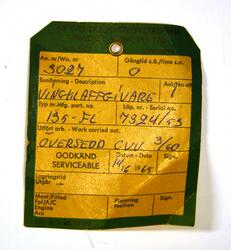 Ao. nr/Wo. nr
Gångtid s.ö./time s.o.
3027
0
Benämning - Description
Ant/No off
VINGKLAFFGIVARE
1
Typ nr. Mfg. part. no.
Löp. nr. - Serial no.
135-FL
7324/53
Utfört arb. - Work carried out.
ÖVERSEDD CVV 3/60
GODKÄND
SERVICEABLE
Datum - Date
Sign.
14/6 1965
Lagringstid
Utgår
Mont/Fitted
Fpl/A/C
Engine
Acc
Placering
Position
Sign.